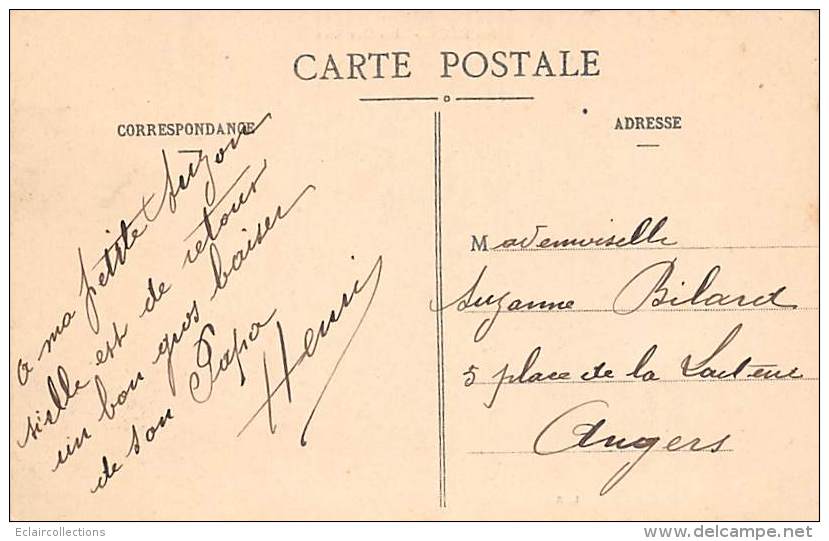 CARTE POSTALE
CORRESPONDANCE
ADRESSE
a ma petite Suzon
sielle est de retour
un bon gros baiser
de son Papa
Henri
Mademoiselle
Suzanne Bilard
5 place de la
Angers
Eclaircollections
www.delcampe.net